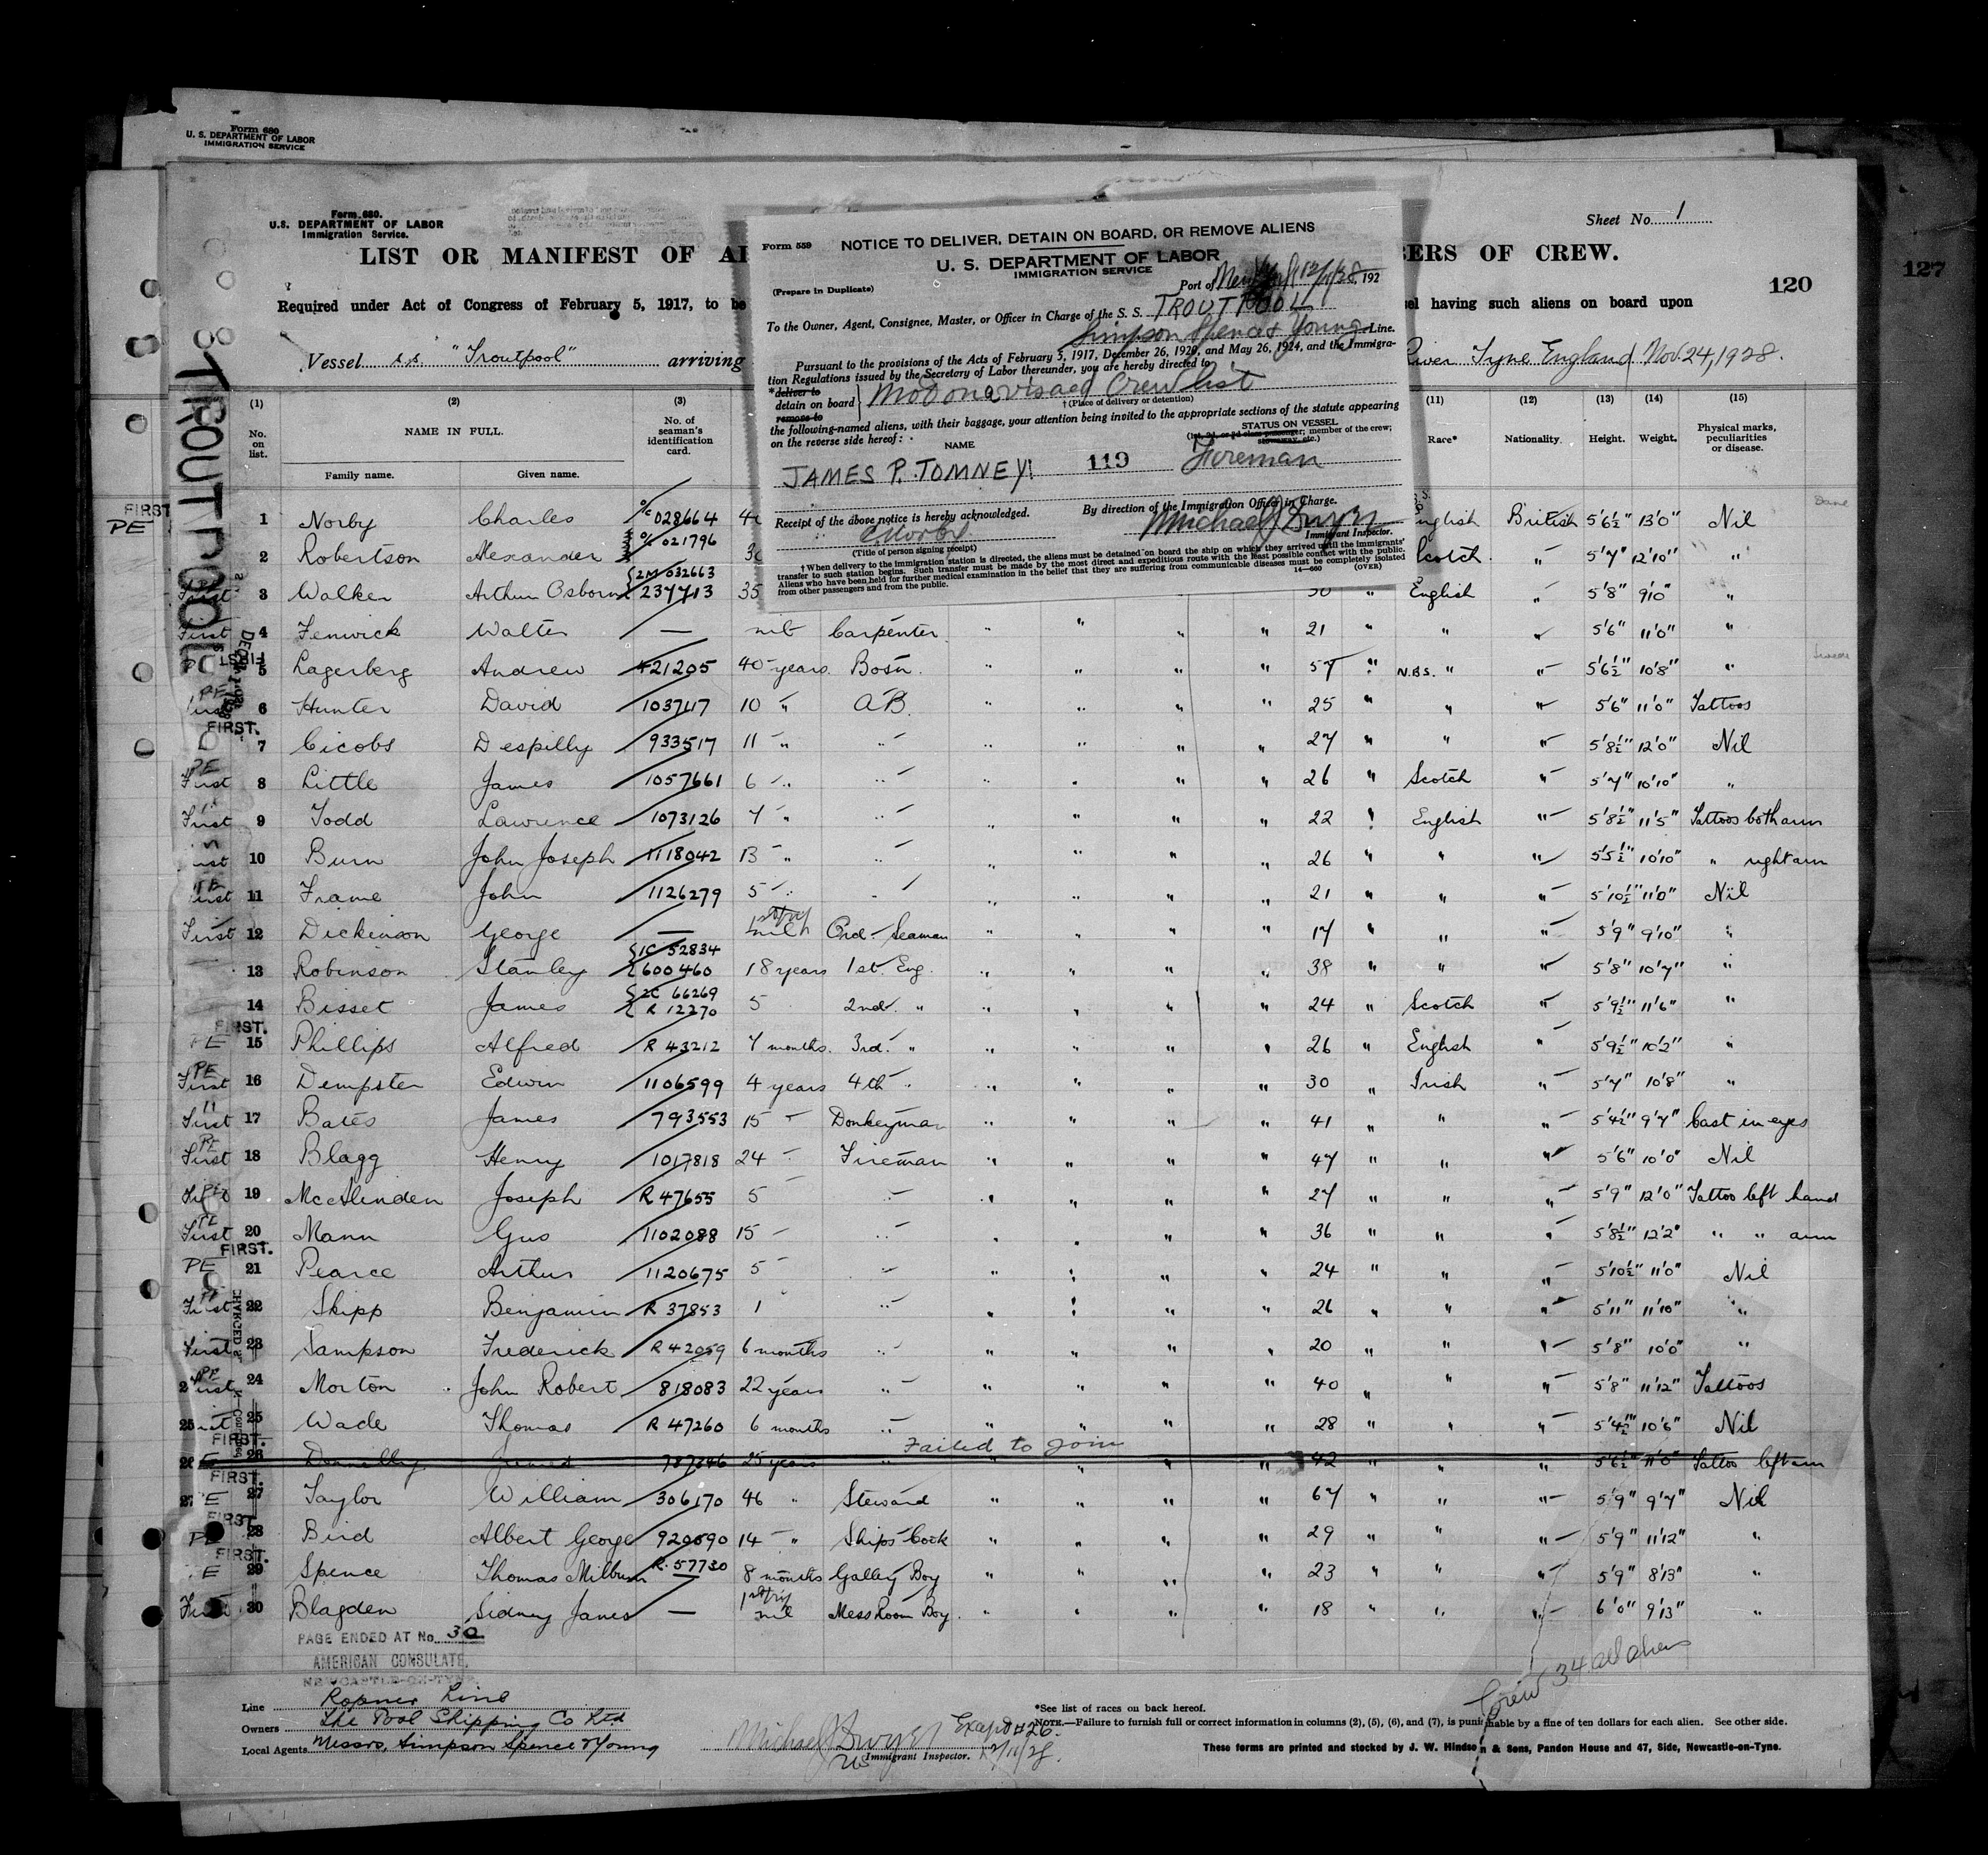 Form 680
U. S. DEPARTMENT OF LABOR
IMMIGRATION SERVICE
Form 680.
U.S. DEPARTMENT OF LABOR
Immigration Service.
Sheet No. 1
LIST OR MANIFEST OF AL
BERS OF CREW.
120
127
Required under Act of Congress of February 5, 1917, to be
sel having such aliens on board upon
Vessel s.s. "Troutpool" arriving
River Tyne England Nov 24, 1928.
TROUTPOOL
Form 559
NOTICE TO DELIVER, DETAIN ON BOARD, OR REMOVE ALIENS
U. S. DEPARTMENT OF LABOR
IMMIGRATION SERVICE
(Prepare in Duplicate)
Port of New York 12/11/28, 192
To the Owner, Agent, Consignee, Master, or Officer in Charge of the S. S. TROUTPOOL
Simpson Spence & Young Line.
Pursuant to the provisions of the Acts of February 5, 1917, December 26, 1920, and May 26, 1924, and the Immigra-
tion Regulations issued by the Secretary of Labor thereunder, you are hereby directed to
*deliver to
detain on board
remove to
Not on a visaed Crew list
† (Place of delivery or detention)
the following-named aliens, with their baggage, your attention being invited to the appropriate sections of the statute appearing
on the reverse side hereof:
NAME
STATUS ON VESSEL
(1st, 2d, or 3d class passenger; member of the crew;
stowaway, etc.)
JAMES P. TOMNEY
119
Fireman
Receipt of the above notice is hereby acknowledged.
By direction of the Immigration Officer in Charge.
C Norby
Michael J Dwyer
Immigrant Inspector.
(Title of person signing receipt)
† When delivery to the immigration station is directed, the aliens must be detained on board the ship on which they arrived until the immigrants'
transfer to such station begins. Such transfer must be made by the most direct and expeditious route with the least possible contact with the public.
Aliens who have been held for further medical examination in the belief that they are suffering from communicable diseases must be completely isolated
from other passengers and from the public.
14—660
(OVER)
(1) (2) (3) (11) (12) (13) (14) (15)
No. on list.
NAME IN FULL.
Family name. Given name.
No. of seaman's identification card.
Race* Nationality. Height. Weight. Physical marks, peculiarities or disease.
FIRST PE 1 Norby Charles o/c 028664 English British 5'6½" 13'0" Nil Dane
2 Robertson Alexander o/c 021796 Scotch " 5'7" 12'10" "
First 3 Walker Arthur Osborn 2M 032663 237713 35 30 " English " 5'8" 9'10" "
First 4 Fenwick Walter — nil Carpenter " " " " 21 " " " 5'6" 11'0" "
FIRST 5 Lagerberg Andrew 421205 40 years. Bosn. " " " " 57 " N.B.S. " " 5'6½" 10'8" " Swede
PE First 6 Hunter David 1037117 10 " A.B. " " " " 25 " " " 5'6" 11'0" Tattoos
FIRST. 7 Cicobs Despilly 933517 11 " " " " " " 27 " " " 5'8½" 12'0" Nil
PE First 8 Little James 1057661 6 " " " " " " 26 " Scotch " 5'7" 10'10" "
First 9 Todd Lawrence 1073126 7 " " " " " " 22 " English " 5'8½" 11'5" Tattoos both arm
First 10 Burn John Joseph 1118042 13 " " " " " " 26 " " " 5'5½" 10'10" " right arm
PE First 11 Frame John 1126279 5 " " " " " " 21 " " " 5'10½" 11'0" Nil
First 12 Dickinson George — 1st trip nil Ord. Seaman " " " " 17 " " " 5'9" 9'10" "
13 Robinson Stanley 1C 52834 600460 18 years 1st. Eng. " " " " 38 " " " 5'8" 10'7" "
14 Bisset James 2C 66269 R 12270 5 2nd. " " " " " 24 " Scotch " 5'9½" 11'6" "
FIRST. PE 15 Phillips Alfred R 43212 7 months. 3rd. " " " " " 26 " English " 5'9½" 10'2" "
PE First 16 Dempster Edwin 1106599 4 years 4th " " " " " 30 " Irish " 5'7" 10'8" "
First 17 Bates James 793553 15 " Donkeyman " " " " 41 " " " 5'4½" 9'7" Cast in eyes
PE First 18 Blagg Henry 1017818 24 " Fireman " " " " 47 " " " 5'6" 10'0" Nil
First 19 McAlinden Joseph R 47655 5 " " " " " " 27 " " " 5'9" 12'0" Tattoo left hand
PE First 20 Mann Gus 1102088 15 " " " " " " 36 " " " 5'8½" 12'2" " " arm
FIRST. PE 21 Pearce Arthur 1120675 5 " " " " " " 24 " " " 5'10½" 11'0" Nil
First 22 Skipp Benjamin R 37853 1 " " " " " " 26 " " " 5'11" 11'10" "
First 23 Sampson Frederick R 42059 6 months " " " " " 20 " " " 5'8" 10'0" "
PE First 24 Morton John Robert 818083 22 years " " " " " 40 " " " 5'8" 11'12" Tattoos
25 Wade Thomas R 47260 6 months " " " " " 28 " " " 5'4½" 10'6" Nil
Failed to join
FIRST. 26 Donnelly James 787346 25 years " " " " " 42 " " " 5'6½" 11'0" Tattoo left arm
FIRST. 27 Taylor William 306170 46 " Steward " " " " 67 " " " 5'9" 9'7" Nil
FIRST PE 28 Bird Albert George 920690 14 " Ships Cook " " " " 29 " " " 5'9" 11'12" "
FIRST. 29 Spence Thomas Milburn R. 57730 8 months Galley Boy " " " " 23 " " " 5'9" 8'13" "
First 30 Blagden Sidney James — 1st trip nil Mess Room Boy. " " " " 18 " " " 6'0" 9'13" "
PAGE ENDED AT No. 30
AMERICAN CONSULATE,
NEWCASTLE-ON-TYNE.
Crew 34 all aliens
Line Ropner Line
Owners The Pool Shipping Co Ltd
Local Agents Messrs, Simpson Spence & Young
Michael J Dwyer
Immigrant Inspector.
Exapd #26.
12/11/28
*See list of races on back hereof.
NOTE.—Failure to furnish full or correct information in columns (2), (5), (6), and (7), is punishable by a fine of ten dollars for each alien. See other side.
These forms are printed and stocked by J. W. Hindson & Sons, Pandon House and 47, Side, Newcastle-on-Tyne.